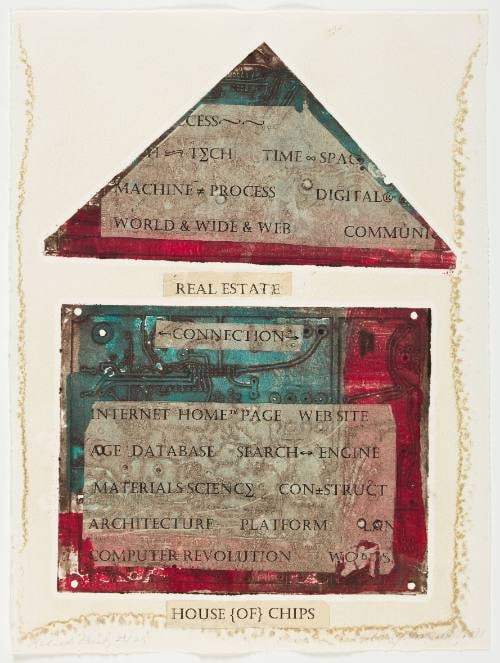 CESS~·~·
TΣCH TIME ∞ SPAC
MACHINE ≠ PROCESS DIGITAL®
WORLD & WIDE & WEB COMMUNI
REAL ESTATE
←CONNECTION→
INTERNET HOME™ PAGE WEB SITE
AGE DATABASE SEARCH↔ENGINE
MATERIALS SCIENCΣ CON±STRUCT
ARCHITECTURE PLATFORM
COMPUTER REVOLUTION
HOUSE {OF} CHIPS